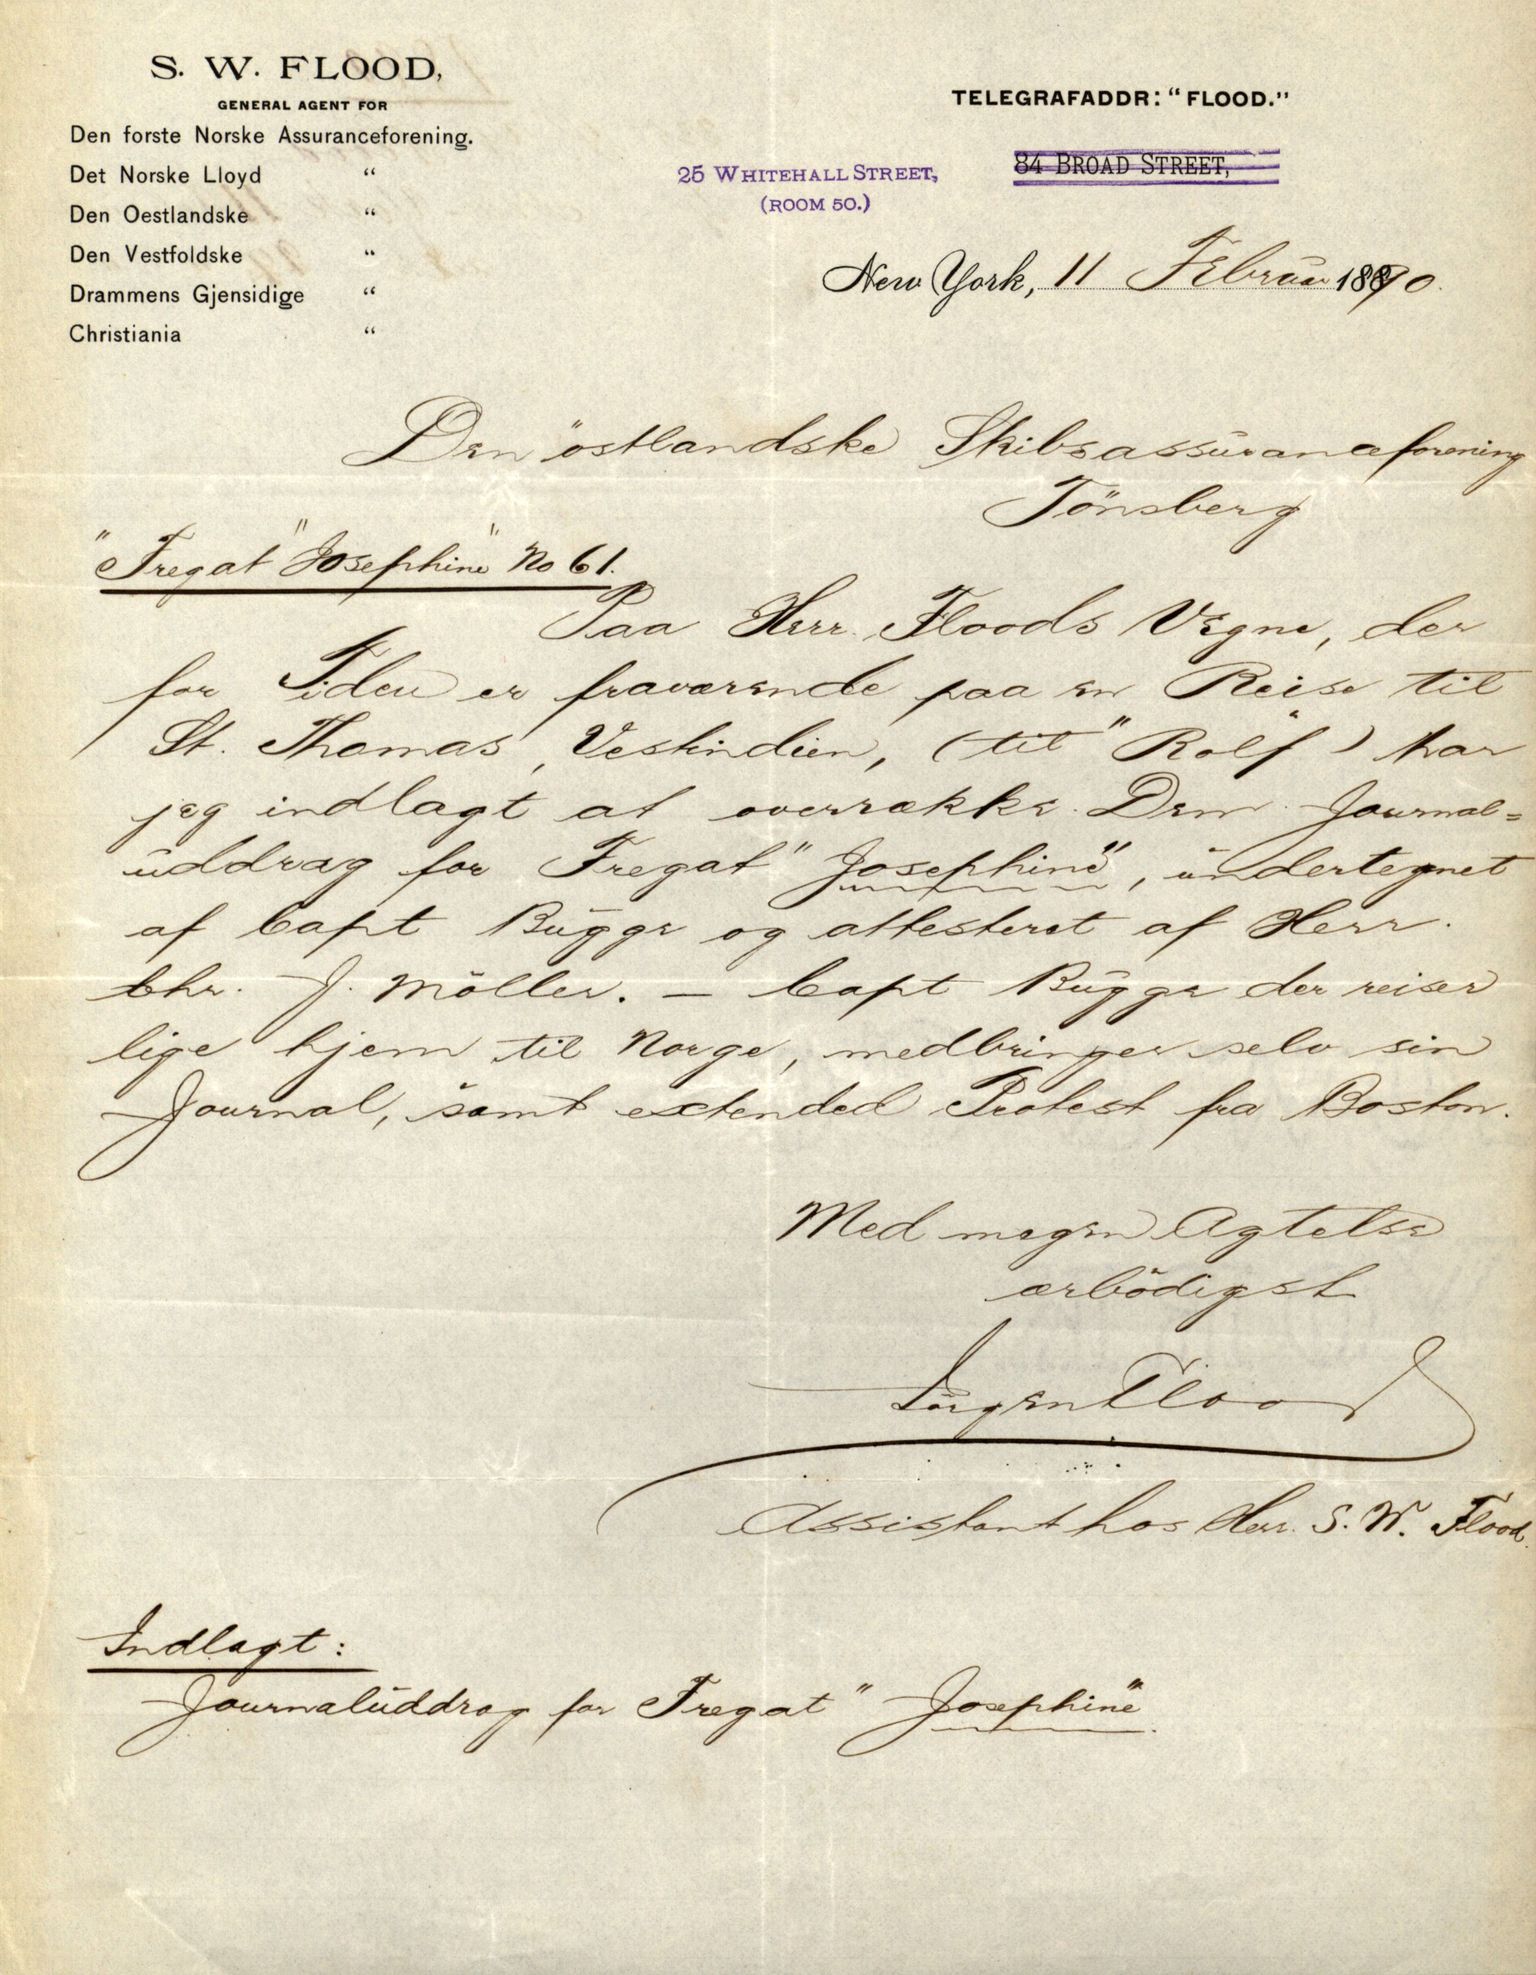 S. W. FLOOD,
GENERAL AGENT FOR
Den forste Norske Assuranceforening.
Det Norske Lloyd “
Den Oestlandske “
Den Vestfoldske “
Drammens Gjensidige “
Christiania “
TELEGRAFADDR: “FLOOD.”
84 BROAD STREET,
25 WHITEHALL STREET,
(ROOM 50.)
New York, 11 Februar 1890.
Den östlandske Skibsassuranceforening
Tönsberg
"Fregat "Josephine" No 61.
Paa Herr Floods Vegne, der
for Tiden er fraværende paa en Reise til
St. Thomas, Vestindien, (til "Rolf") har
jeg indlagt at overrække Dem Journal=
uddrag for Fregat "Josephine", undertegnet
af Capt Bugge og attesteret af Herr.
Chr. J. Möller. — Capt Bugge der reiser
lige hjem til Norge, medbringer selv sin
Journal, samt extended Protest fra Boston.
Med megen Agtelse
ærbödigst
Jörgen Flood
Assistant hos Herr. S. W. Flood.
Indlagt:
Journaluddrag for Fregat "Josephine"